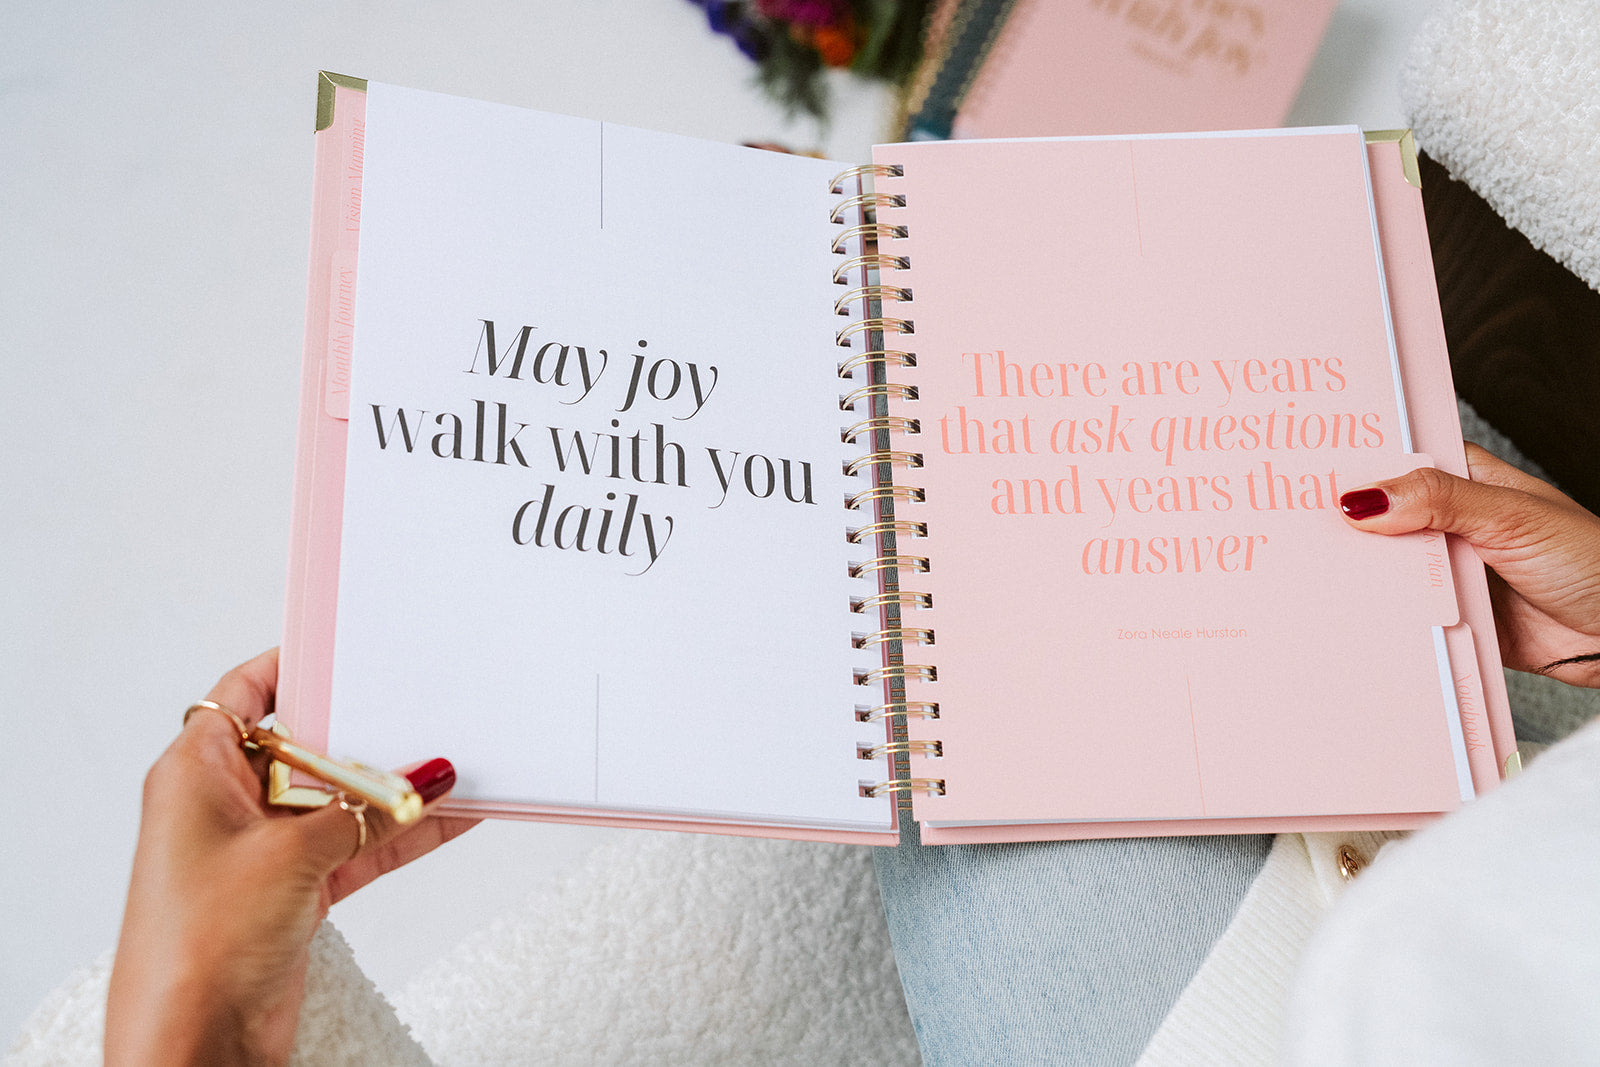 Vision Mapping
Monthly Journey
May joy
walk with you
daily
There are years
that ask questions
and years that
answer
Zora Neale Hurston
Plan
Notebook
with joy